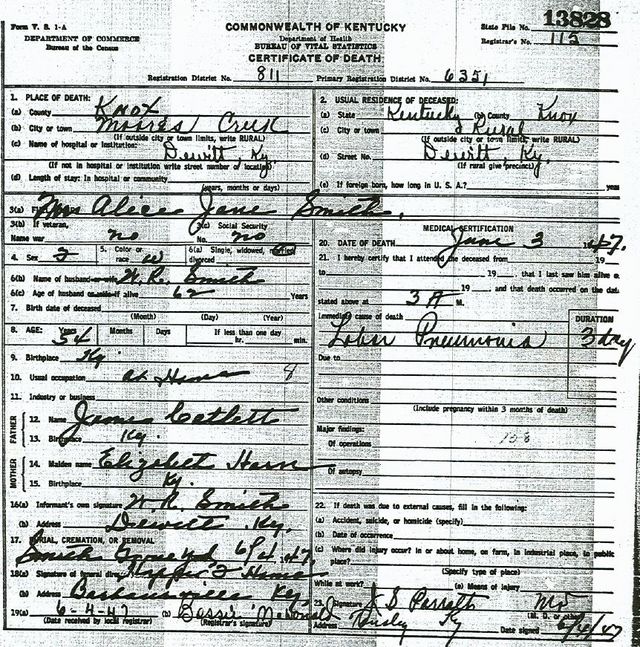 Form V. S. 1-A
DEPARTMENT OF COMMERCE
Bureau of the Census
COMMONWEALTH OF KENTUCKY
Department of Health
BUREAU OF VITAL STATISTICS
CERTIFICATE OF DEATH
State File No. 13828
Registrar's No. 115
Registration District No. 811 Primary Registration District No. 6351
1. PLACE OF DEATH:
(a) County Knox
(b) City or town Creek
(If outside city or town limits, write RURAL)
(c) Name of hospital or institution:
Dewitt, Ky.
(If not in hospital or institution write street number or location)
(d) Length of stay: In hospital or community
(years, months or days)
2. USUAL RESIDENCE OF DECEASED:
(a) State Kentucky (b) County Knox
(c) City or town Rural
(If outside city or town limits, write RURAL)
(d) Street No. Dewitt, Ky.
(If rural give precinct)
(e) If foreign born, how long in U. S. A.? years
3(a) Mrs Alice Jane Smith.
3(b) If veteran,
Name war no
3(c) Social Security
No. no
4. Sex 5. Color or race w
6(a) Single, widowed,
divorced
6(b) Name of husband or wife W. R. Smith
6(c) Age of husband or wife if alive 62 Years
7. Birth date of deceased
(Month) (Day) (Year)
8. AGE: Years 54 Months Days If less than one day
hr. min.
9. Birthplace Ky.
10. Usual occupation at Home 8
11. Industry or business
FATHER
12. Name James Catlett
13. Birthplace Ky.
MOTHER
14. Maiden name Elizabet
15. Birthplace Ky.
16(a) Informant's own signature W. R. Smith
(b) Address Dewitt Ky.
17. BURIAL, CREMATION, OR REMOVAL
Smith 6/4 47
18(a) Signature of funeral director Home
(b) Address Barbourville Ky
19(a) 6-4-47 (b)
(Date received by local registrar) (Registrar's signature)
MEDICAL CERTIFICATION
20. DATE OF DEATH June 3 1947.
21. I hereby certify that I attended the deceased from 19
to 19 that I last saw him alive on
19 and that death occurred on the date
stated above at 3 A M.
Immediate cause of death
Lobar Pneumonia
DURATION
3 day
Due to
Other conditions
(Include pregnancy within 3 months of death)
Major findings:
Of operations
Of autopsy
22. If death was due to external causes, fill in the following:
(a) Accident, suicide, or homicide (specify)
(b) Date of occurrence
(c) Where did injury occur? In or about home, on farm, in industrial place, in public
place?
(Specify type of place)
While at work? (e) Means of injury
23. Signature J S Parrott MD
(M. D. or other)
Address Ky Date signed